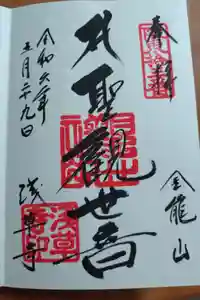 奉拝
金龍山
聖観世音
浅草寺
令和六年
五月二十九日